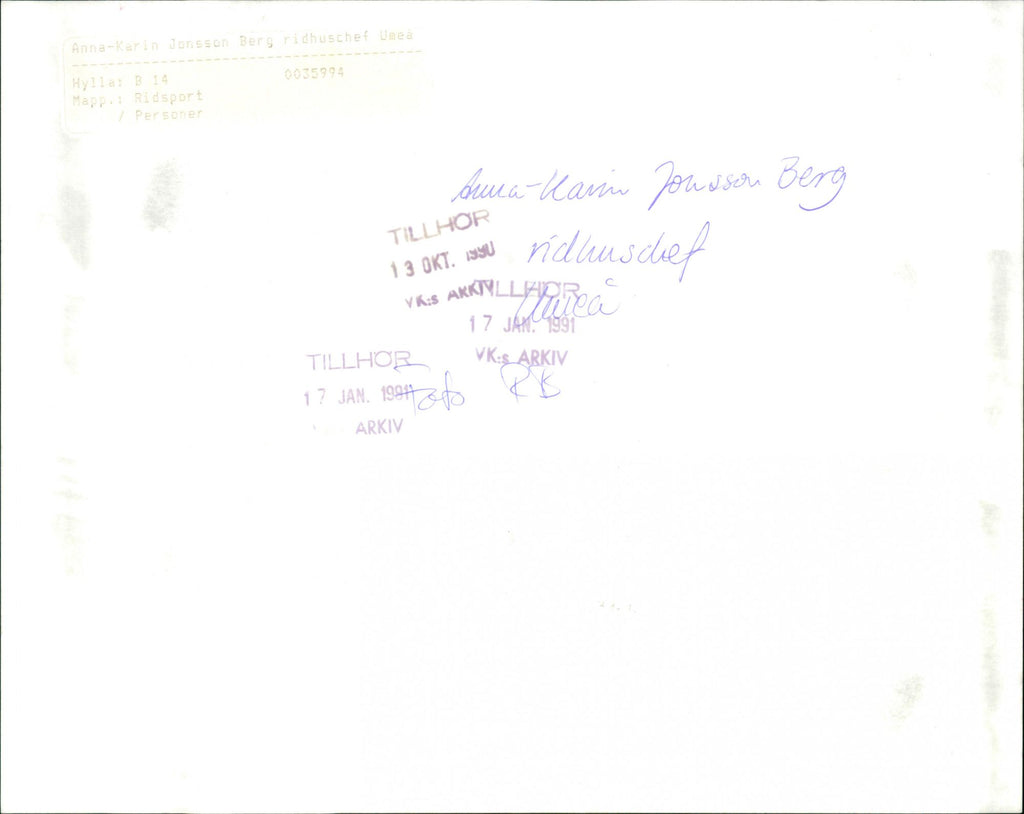 Anna-Karin Jonsson Berg ridhuschef Umeå
Hylla: B 14 0035994
Mapp.: Ridsport
/ Personer
Anna-Karin Jonsson Berg
ridhuschef
Umeå
TILLHÖR
13 OKT. 1990
VK:s ARKIV
TILLHÖR
17 JAN. 1991
VK:s ARKIV
TILLHÖR
17 JAN. 1991
ARKIV
Foto RB